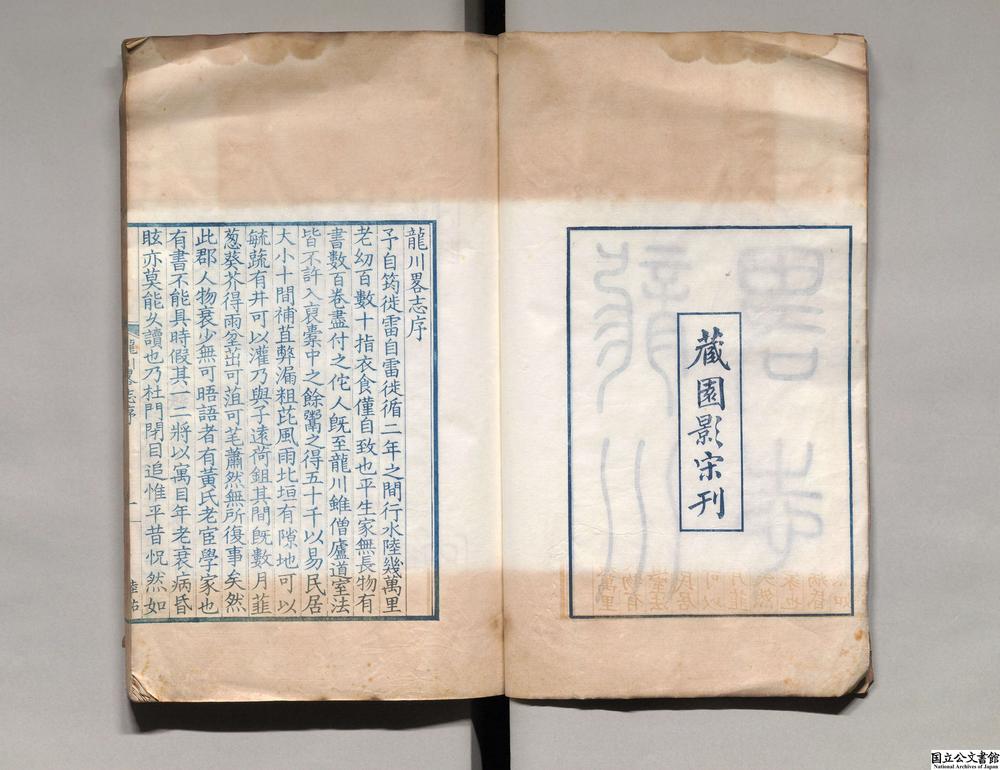 藏園影宋刊
龍川畧志序
予自筠徙雷自雷徙循二年之間行水陸幾萬里
老幼百數十指衣食僅自致也平生家無長物有
書數百卷盡付之佗人旣至龍川雖僧廬道室法
皆不許入裒橐中之餘鬻之得五十千以易民居
大小十間補苴弊漏粗芘風雨北垣有隙地可以
毓蔬有井可以灌乃與子遠荷鉏其間旣數月韮
葱葵芥得雨坌茁可葅可芼蕭然無所復事矣然
此郡人物衰少無可晤語者有黃氏老宦學家也
有書不能具時假其一二將以寓目年老衰病昏
眩亦莫能久讀也乃杜門閉目追惟平昔怳然如
龍川畧志序
一
国立公文書館
National Archives of Japan